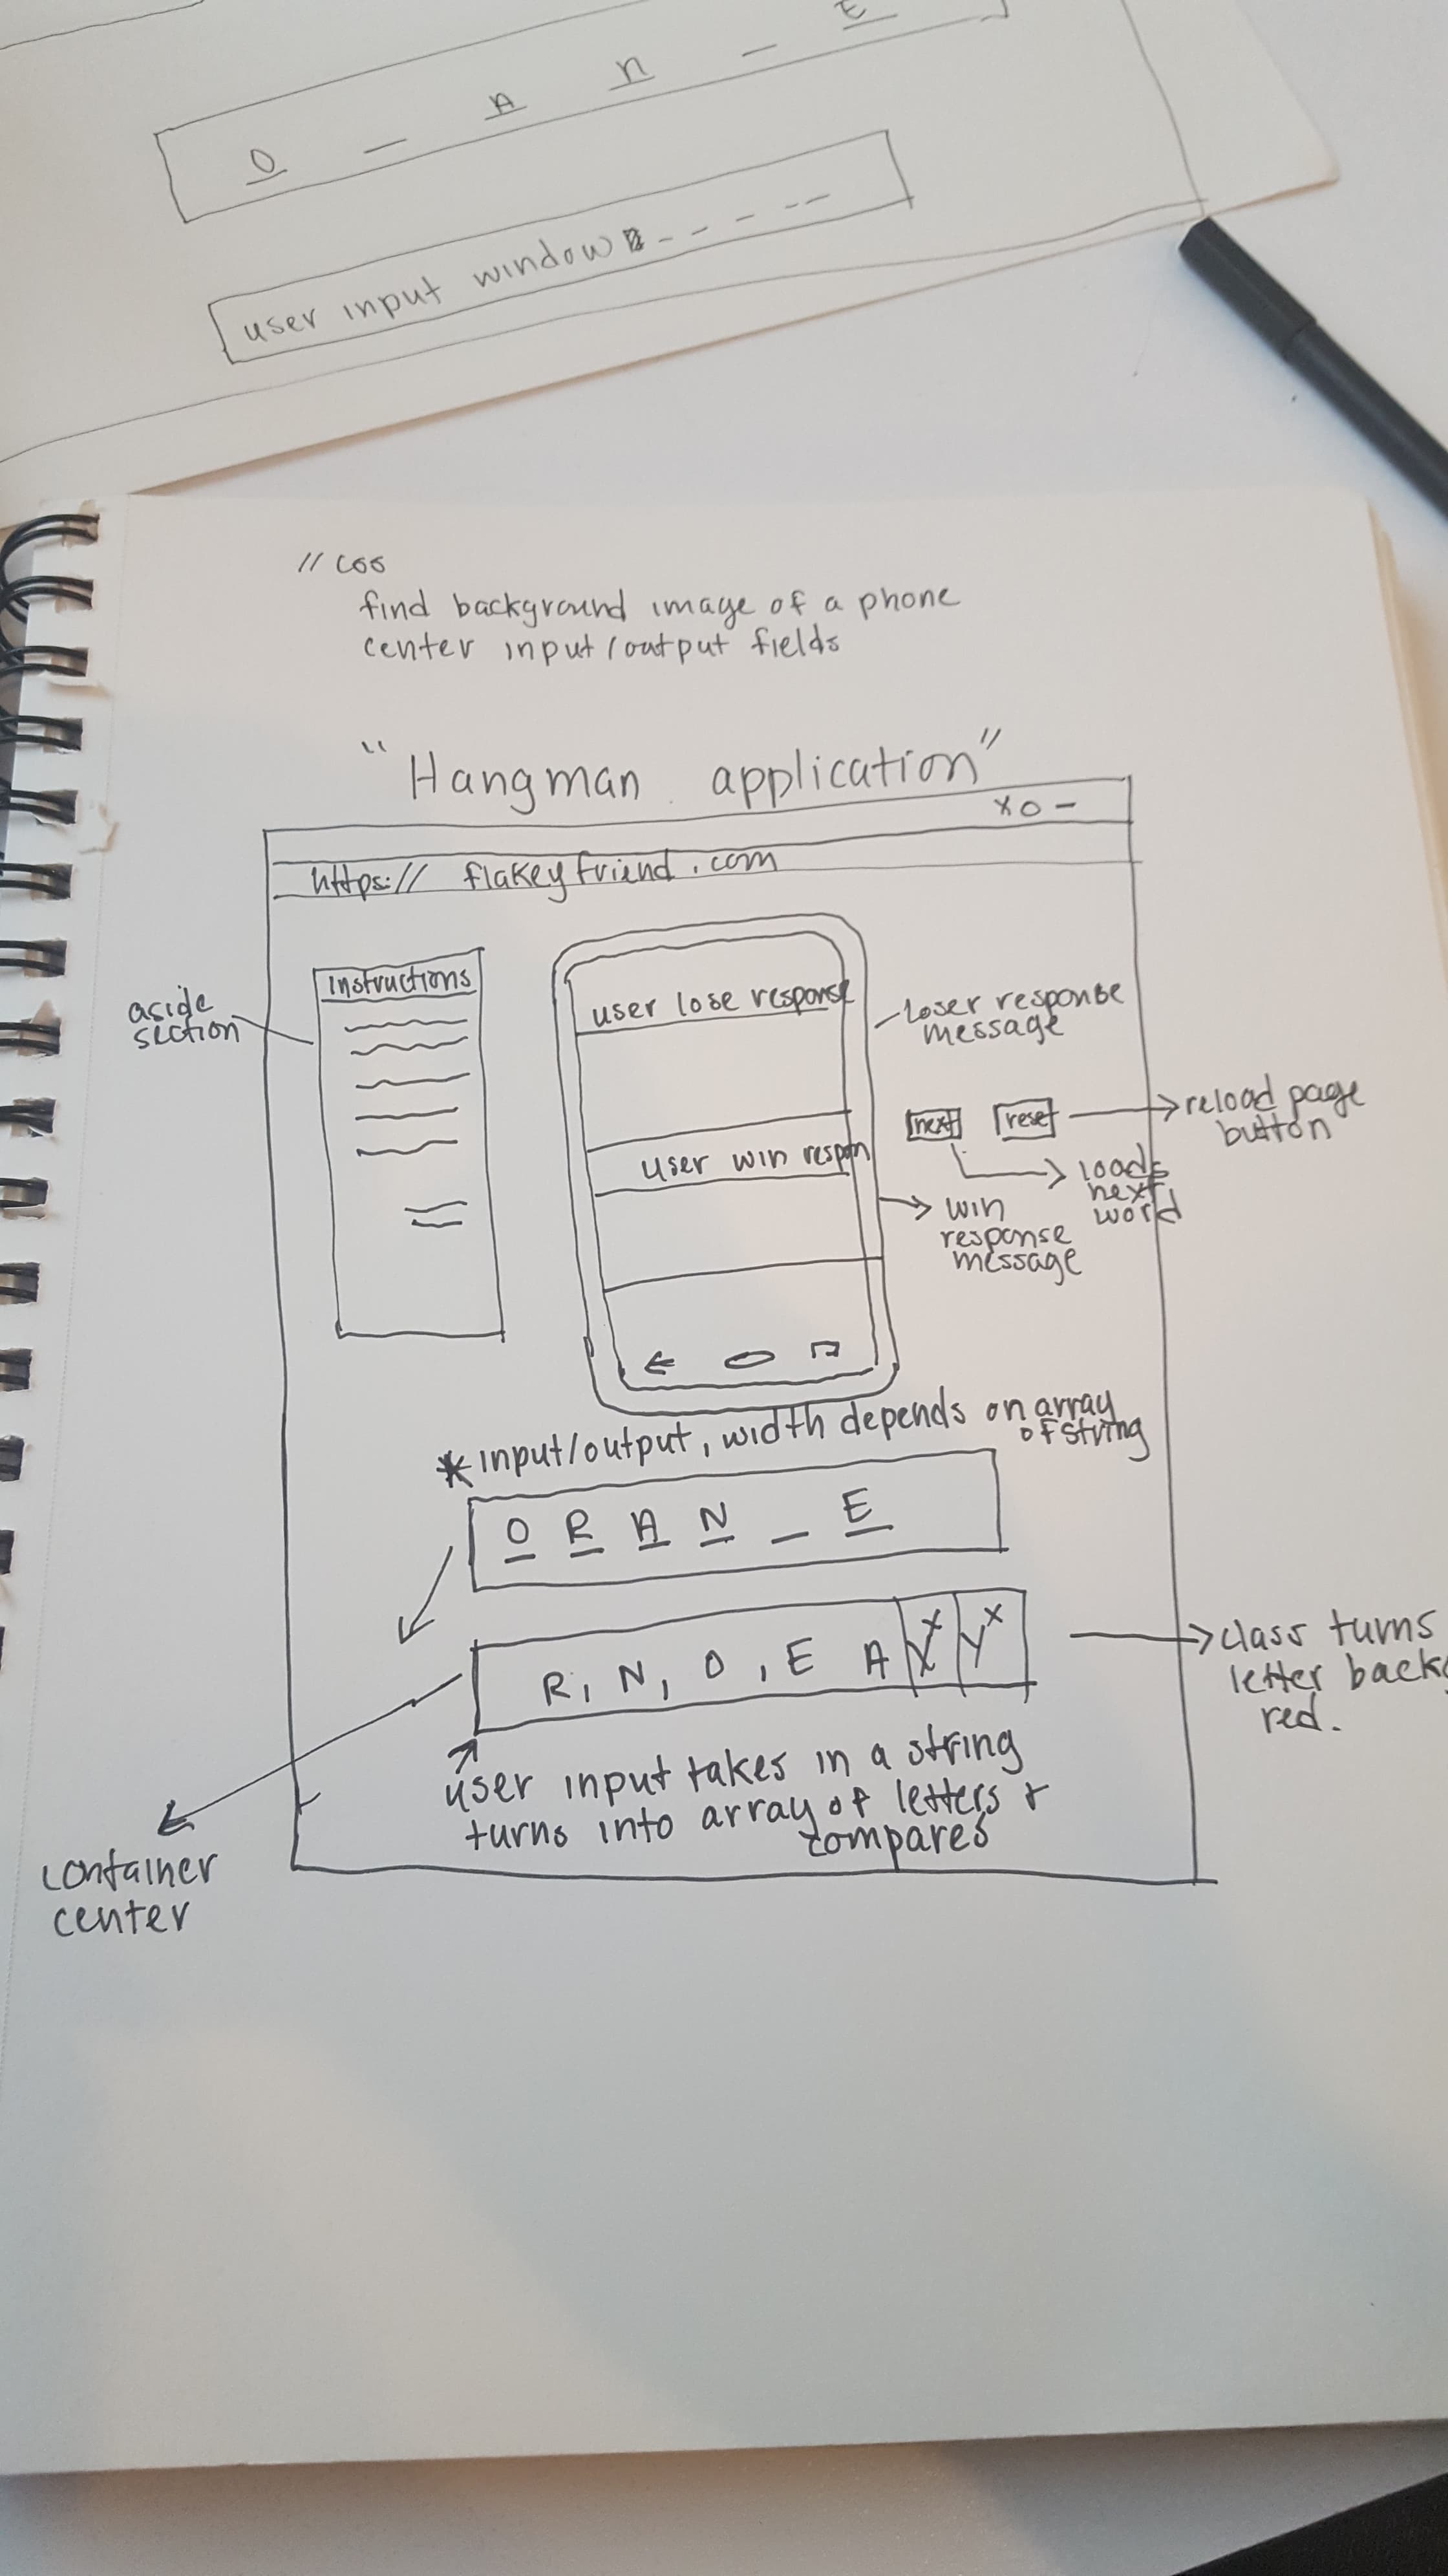 O _ A n _ E
user input window - - - - --
// css
find background image of a phone
center input/output fields
"Hangman application"
x o -
https:// flakeyfriend.com
instructions
aside
section
user lose response
loser response
message
next reset
reload page
button
user win respon
loads
next
word
win
response
message
* input/output, width depends on array
of string
O R A N _ E
R, N, O, E A X x Y x
class turns
letter back
red.
user input takes in a string
turns into array of letters &
compares
container
center